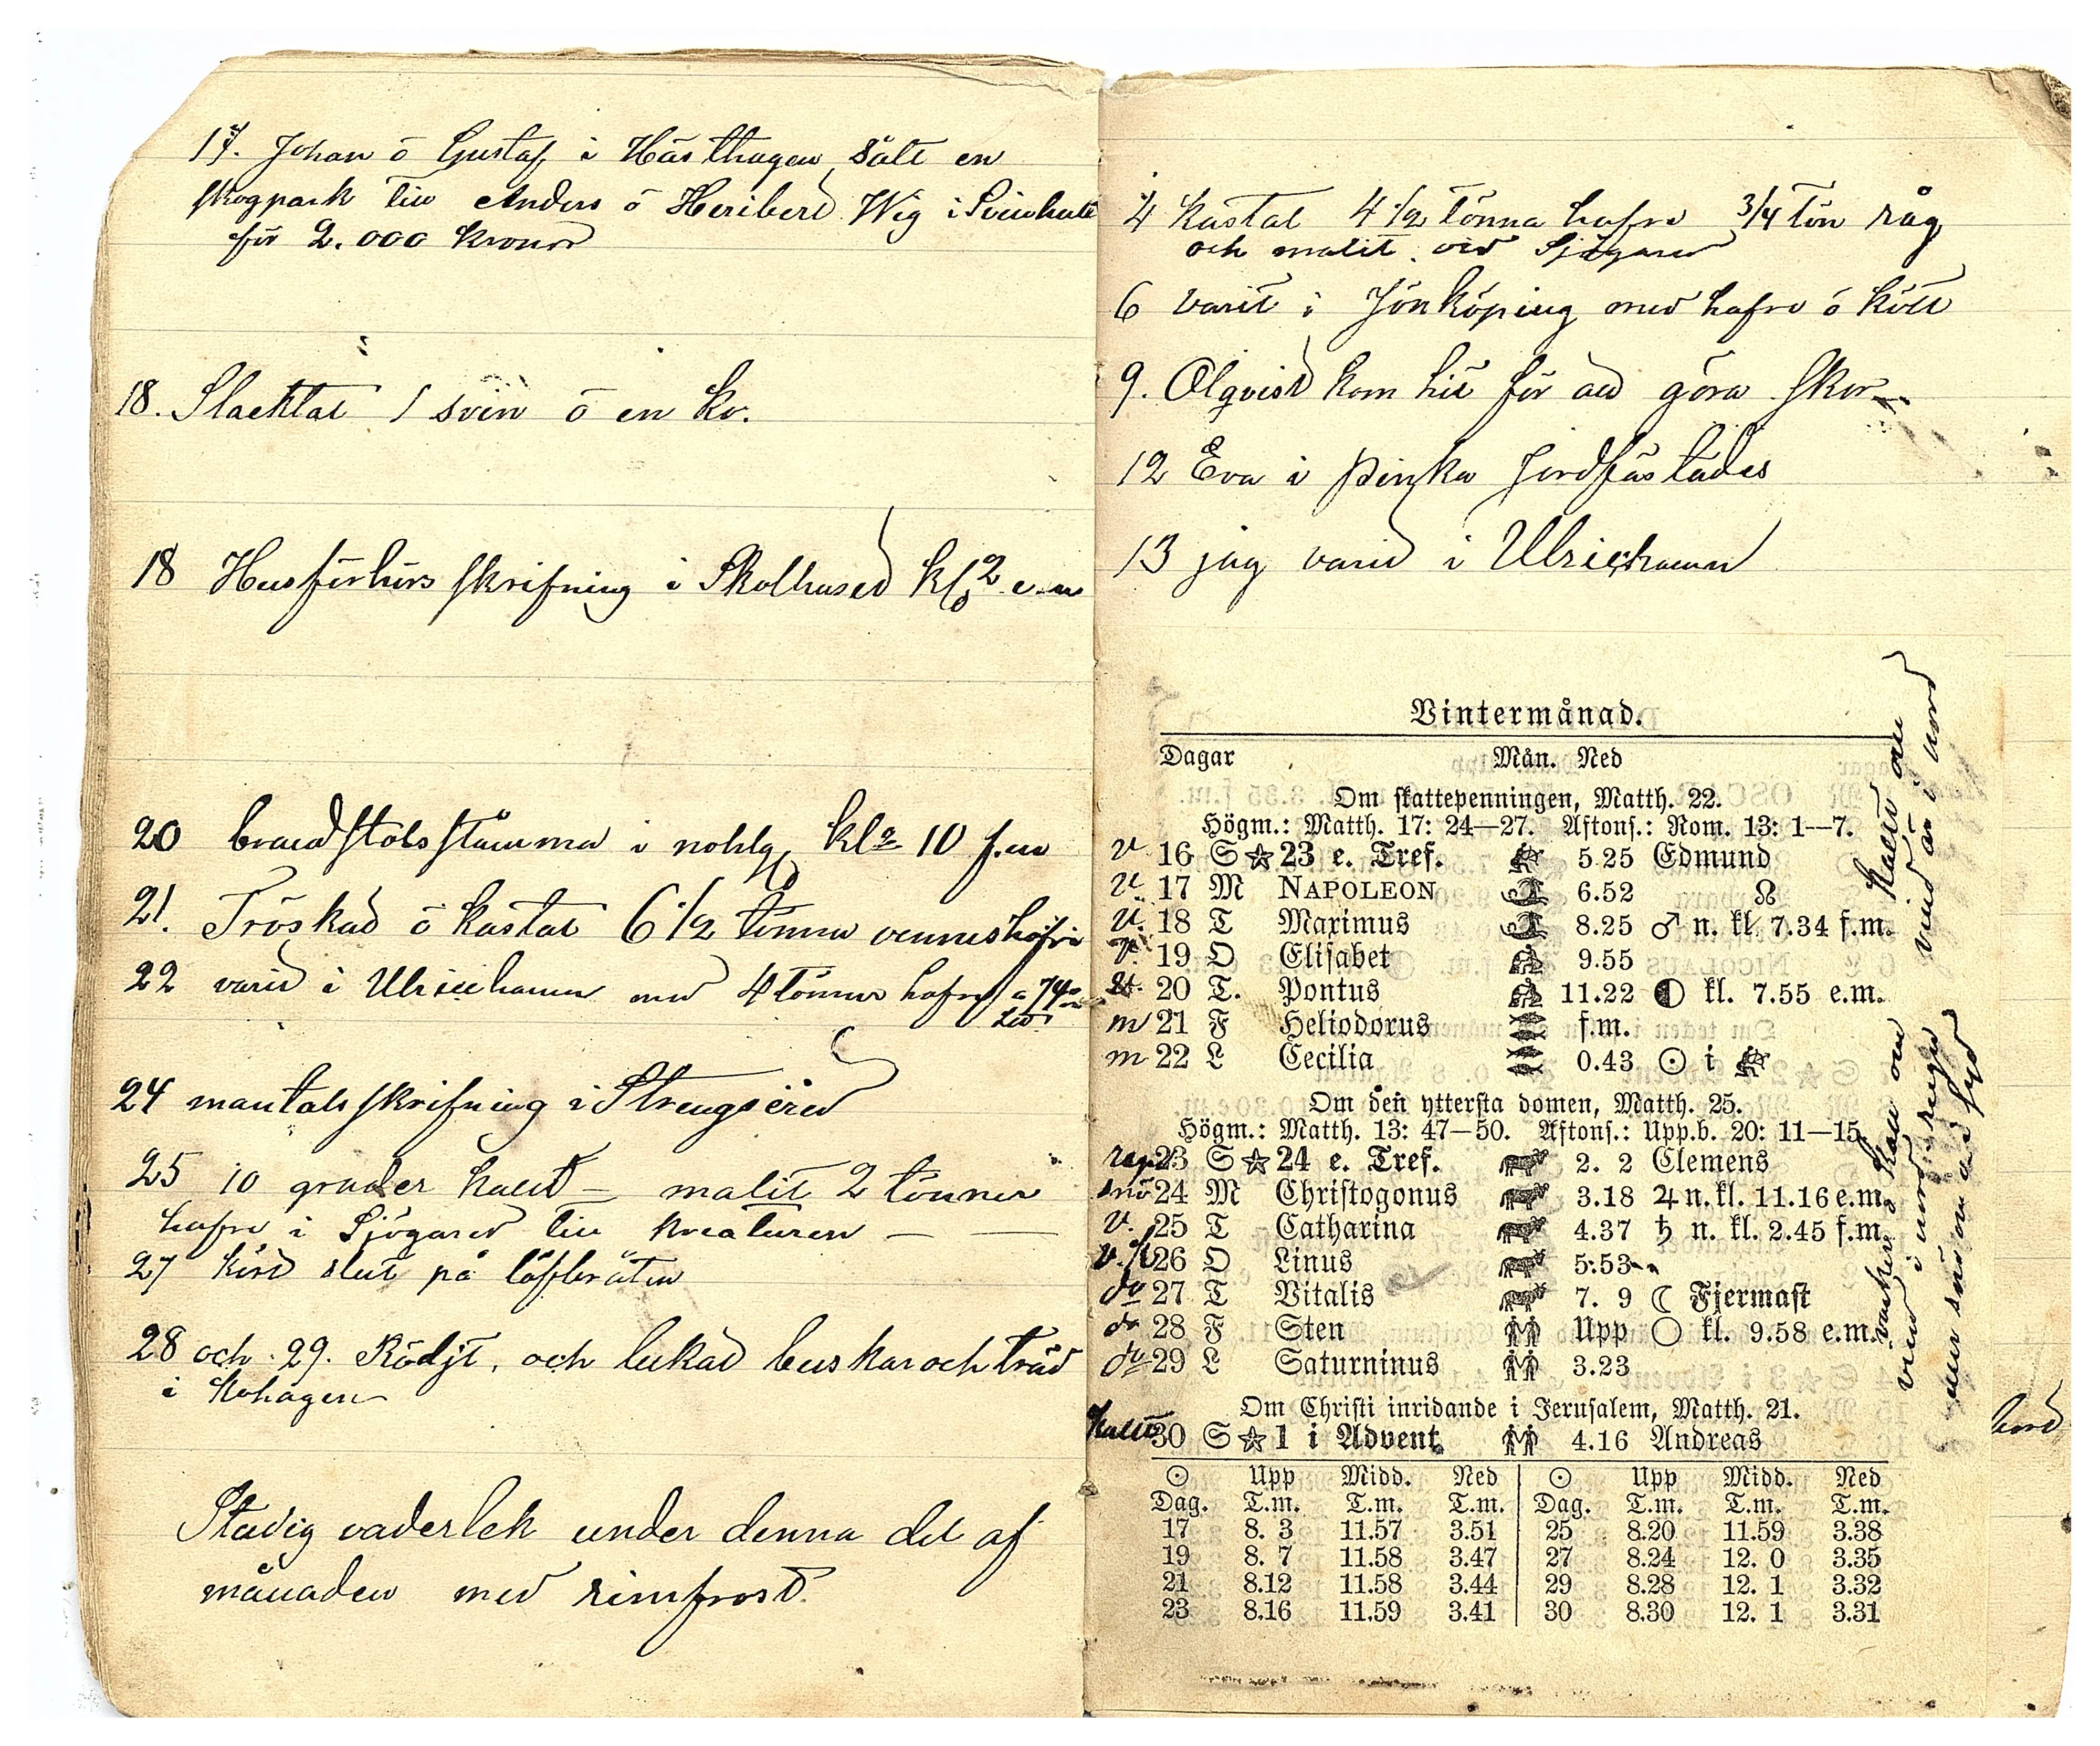 17. Johan ö Gustaf i Hästhagen sålt en
skogpark till Anders ö Heribert Wig i Svenhult
för 2.000 kronor
18. Slacktat 1 svin ö en ko.
18 Husförhörs skrifning i Skolhuset kl 2 e.m
20 brandstodsstämma i nohlg kl 10 f.m
21. Tröskad ö kastat 6 1/2 tönna
22 varit i Ulricehamn med 4 tönner hafre
24 mantalsskrifning i Strengsered
25 10 grader kallt — malit 2 tönner
hafre i Sjögared till kreaturen — —
27 kört slut på löfbråten
28 och 29. Rödjt, och lukad buskar och träd
i kohagen
Stadig väderlek under denna del af
månaden med rimfrost.
4 kastat 4 1/2 tönna hafre 3/4 tön råg
och malit vid Sjögared
6 varit i Jönköping med hafre ö kött
9. Olqvist kom hit för att göra skor
12 Eva i Pinka jordfästades
13 jag varit i Ulricehamn
Vintermånad.
Dagar Mån. Ned
Om skattepenningen, Matth. 22.
Högm.: Matth. 17: 24—27. Aftons.: Rom. 13: 1—7.
v 16 S ☆ 23 e. Tref. 5.25 Edmund
v. 17 M NAPOLEON 6.52 ☊
v. 18 T Maximus 8.25 ♂ n. kl. 7.34 f.m.
v. 19 O Elisabet 9.55
20 T. Pontus 11.22 ◐ kl. 7.55 e.m.
m 21 F Heliodorus f.m.
m 22 L Cecilia 0.43 ☉ i ♐
Om den yttersta domen, Matth. 25.
Högm.: Matth. 13: 47—50. Aftons.: Upp.b. 20: 11—15.
regn 23 S ☆ 24 e. Tref. 2. 2 Clemens
snö 24 M Christogonus 3.18 ♃ n. kl. 11.16 e.m.
v. 25 T Catharina 4.37 ♄ n. kl. 2.45 f.m.
26 O Linus 5.53
do 27 T Vitalis 7. 9 ☾ Fjermast
do 28 F Sten Upp ○ kl. 9.58 e.m.
do 29 L Saturninus 3.23
Om Christi inridande i Jerusalem, Matth. 21.
kallt 30 S ☆ 1 i Advent 4.16 Andreas
☉ Upp Midd. Ned ☉ Upp Midd. Ned
Dag. T.m. T.m. T.m. Dag. T.m. T.m. T.m.
17 8. 3 11.57 3.51 25 8.20 11.59 3.38
19 8. 7 11.58 3.47 27 8.24 12. 0 3.35
21 8.12 11.58 3.44 29 8.28 12. 1 3.32
23 8.16 11.59 3.41 30 8.30 12. 1 3.31